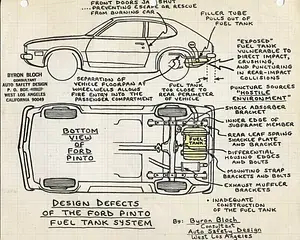 FRONT DOORS JA SHUT
...PREVENTING ESCAPE OR RESCUE
FROM BURNING CAR.
FILLER TUBE
PULLS OUT OF
FUEL TANK
"EXPOSED"
FUEL TANK
VULNERABLE TO
DIRECT IMPACT,
CRUSHING,
AND PUNCTURING
IN REAR-IMPACT
COLLISIONS
BYRON BLOCH
CONSULTANT
AUTO SAFETY DESIGN
P. O. BOX
WEST LOS ANGELES
CALIFORNIA 90049
SEPARATION OF
VEHICLE FLOORPAN AT
WHEELWELLS ALLOWS
FIRE ENTRY INTO THE
PASSENGER COMPARTMENT
FUEL TANK
TOO CLOSE TO
REAR PERIMETER
OF VEHICLE
PUNCTURE SOURCES
"HOSTILE
ENVIRONMENT"
SHOCK ABSORBER
BRACKET
INNER EDGE OF
SUBFRAME MEMBER
REAR LEAF SPRING
SHACKLE PLATE
AND BRACKET
DIFFERENTIAL
HOUSING EDGES
AND BOLTS
MOUNTING STRAP
BRACKETS AND BOLTS
EXHAUST MUFFLER
BRACKETS
BOTTOM
VIEW
OF
FORD
PINTO
FUEL
TANK
• INADEQUATE
CONSTRUCTION
OF THE FUEL TANK
DESIGN DEFECTS
OF THE FORD PINTO
FUEL TANK SYSTEM
By: Byron Bloch
Consultant
Auto Safety Design
West Los Angeles